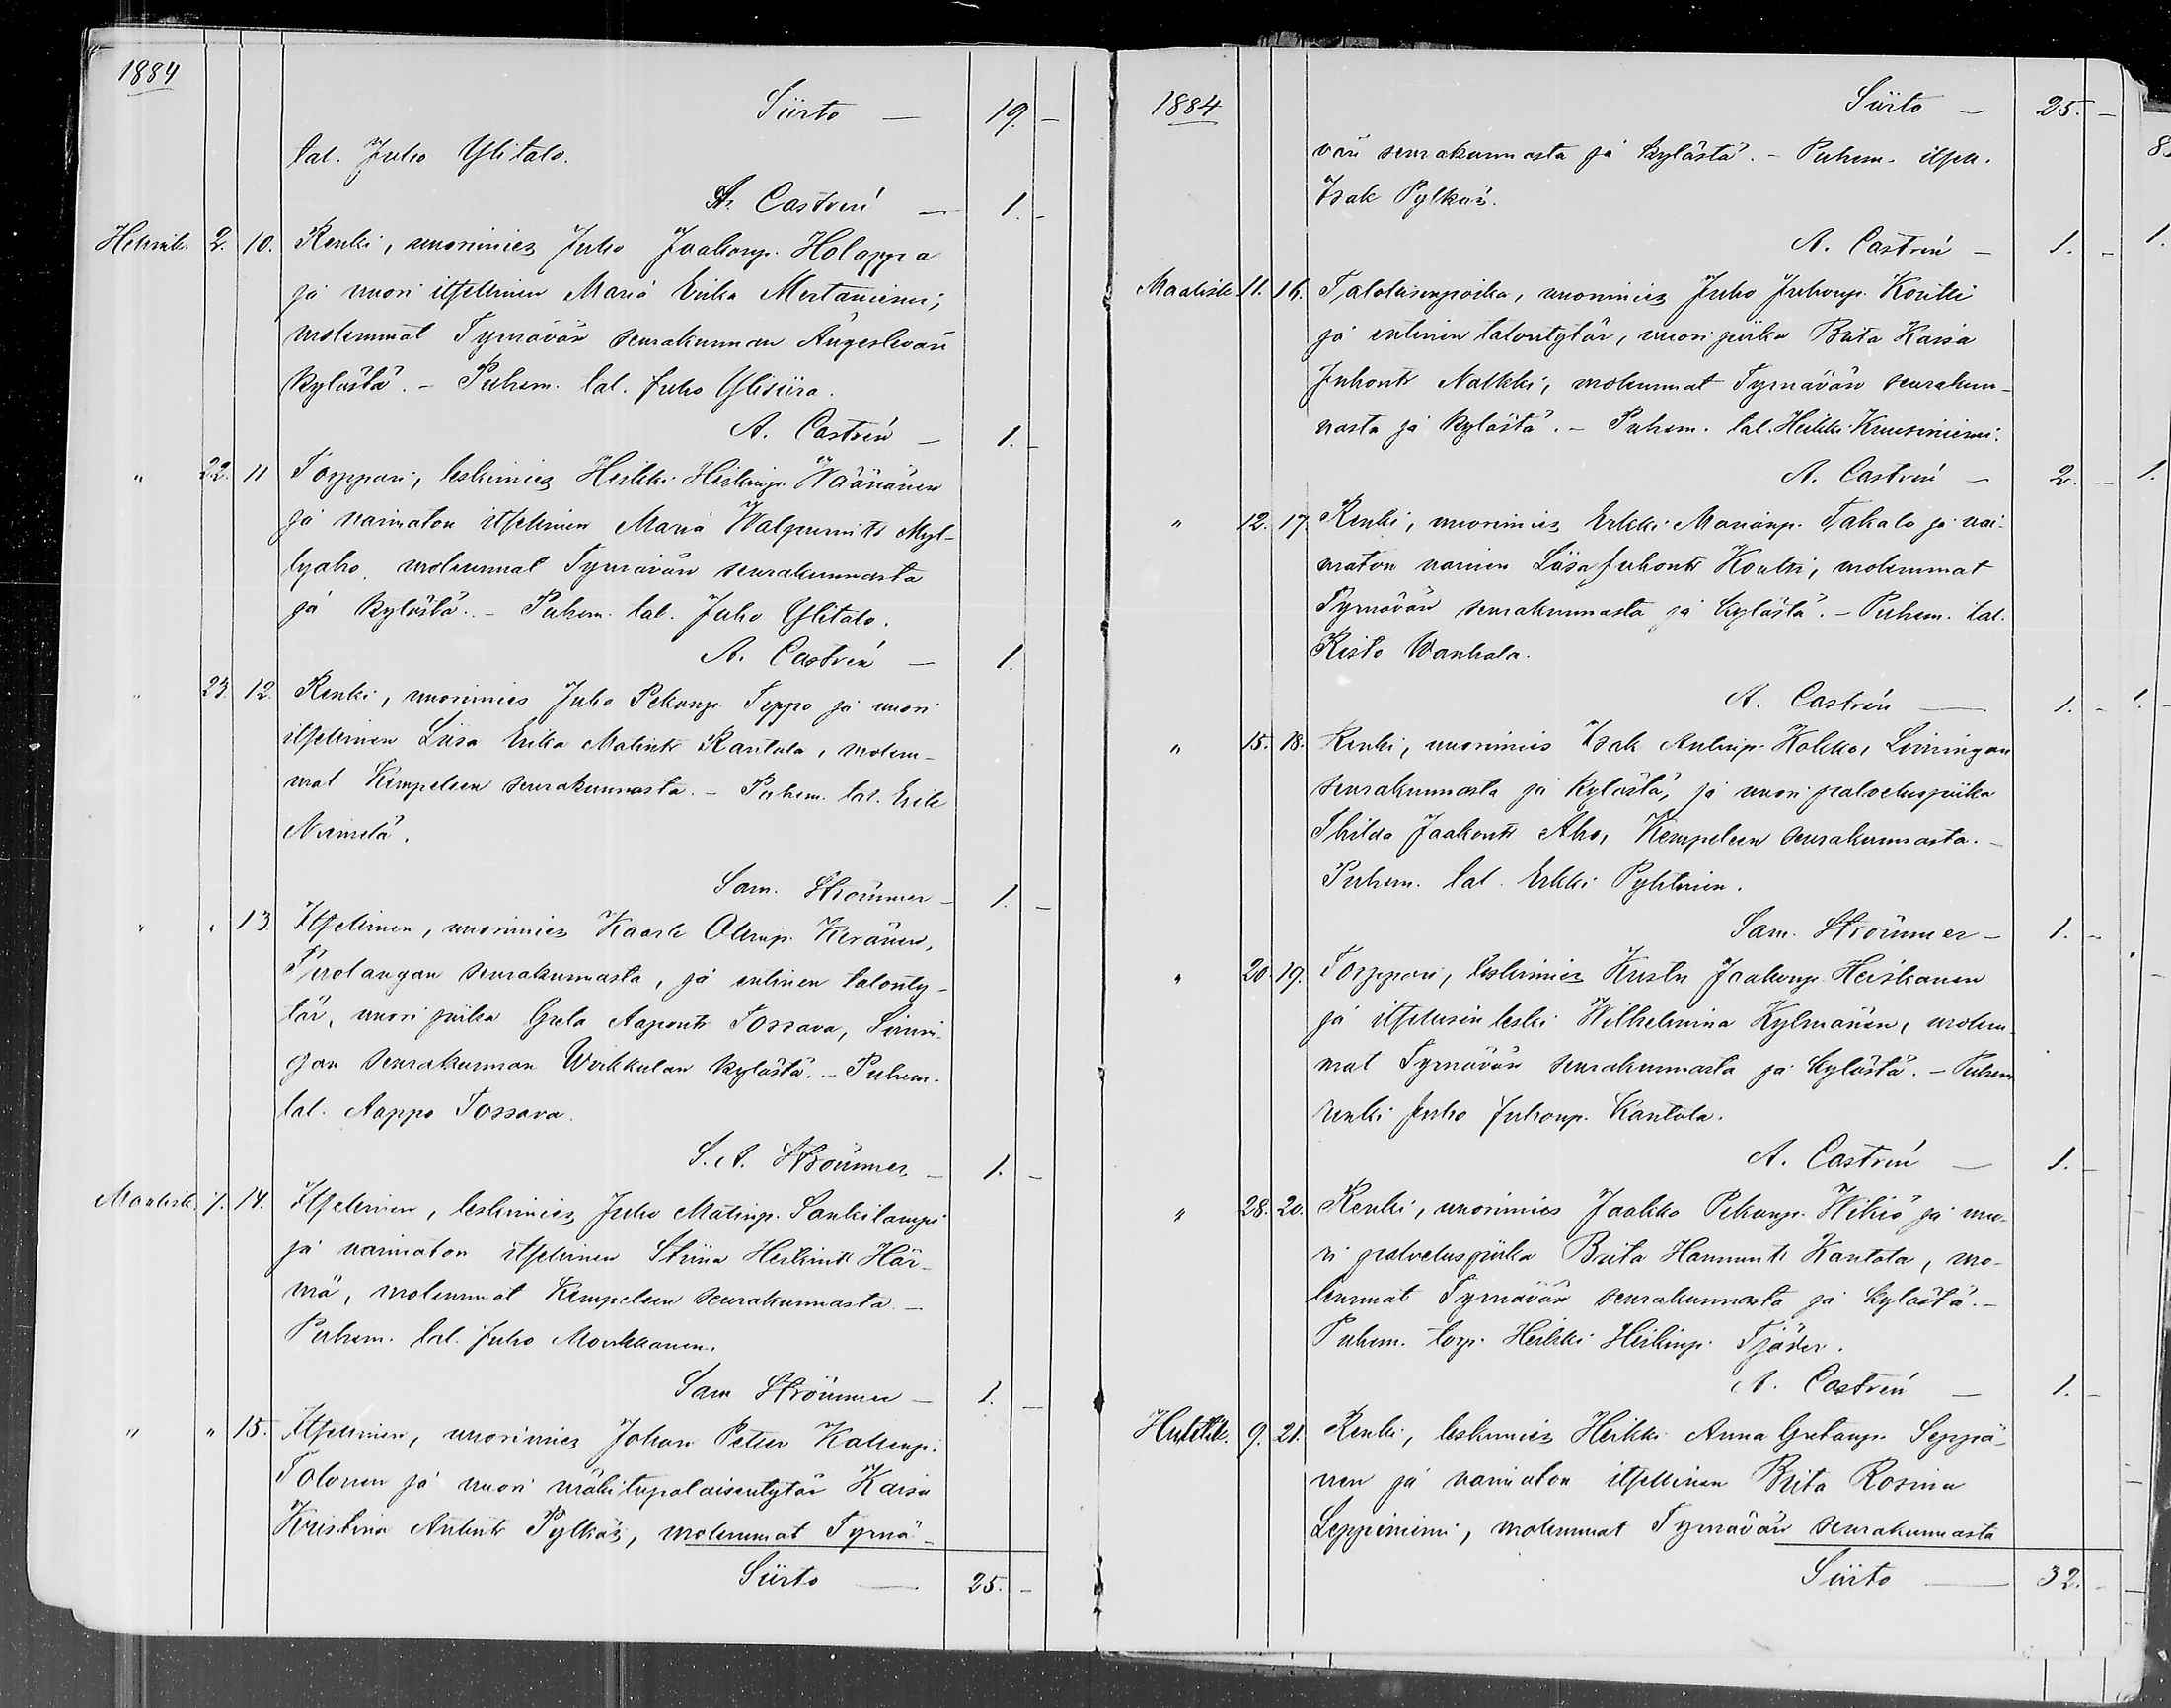 1884
Siirto — 19. —
tal. Juho Ylitalo.
A. Castrén — 1. —
Helmik. 2. 10. Renki, nuorimies Juho Jaakonp. Holappa
ja nuori itsellinen Maria Erika Mertaniemi,
molemmat Tyrnävän seurakunnan Ängeslevän
kylästä. - Puhem. tal. Juho Ylisiira.
A. Castrén — 1. —
" 22. 11 Torppari, leskimies Heikki Heikinp. Väänänen
ja naimaton itsellinen Maria Walpurintr Myl-
lyaho, molemmat Tyrnävän seurakunnasta
ja kylästä. - Puhem. tal. Juho Ylitalo.
A. Castrén — 1.
" 23. 12. Renki, nuorimies Juho Pekanp. Teppo ja nuori
itsellinen Liisa Erika Matintr Rantala, molem-
mat Kempeleen seurakunnasta. - Puhem. tal. Erik
Niemelä.
Sam. Strömmer — 1. —
" " 13. Itsellinen, nuorimies Kaarle Ollinp. Keränen,
Puolangan seurakunnasta, ja entinen talonty-
tär, nuori piika Greta Aapontr Tossava, Limin-
gan seurakunnan Wirkkulan kylästä. - Puhem.
tal. Aappo Tossava.
S. A. Strömmer — 1. —
Maalisk. 1. 14. Itsellinen, leskimies Juho Matinp. Sankilampi
ja naimaton itsellinen Stiina Heikintr Här-
mä, molemmat Kempeleen seurakunnasta. —
Puhem. tal. Juho Monkkanen.
Sam Strömmer — 1. —
" " 15. Itsellinen, nuorimies Johan Petter Kallenp.
Tolonen ja nuori mäkitupalaisentytär Kaisa
Kristina Antintr Pylkäs, molemmat Tyrnä-
Siirto — 25. —
1884
Siirto — 25. —
vän seurakunnasta ja kylästä. - Puhem. itsell.
Isak Pylkäs.
A. Castrén — 1. —
Maalisk. 11. 16. Talollisenpoika, nuorimies Juho Juhonp. Kontti
ja entinen talontytär, nuori piika Brita Kaisa
Juhontr Nalkki, molemmat Tyrnävän seurakun-
nasta ja kylästä. - Puhem. tal. Heikki Kuusiniemi.
A. Castrén — 2. —
" 12. 17. Renki, nuorimies Erkki Marianp. Takalo ja nai-
maton nainen Liisa Juhontr Kontti, molemmat
Tyrnävän seurakunnasta ja kylästä. - Puhem. tal.
Risto Wanhala.
A. Castrén — 1. —
" 15. 18. Renki, nuorimies Isak Antinp. Kokko, Limingan
seurakunnasta ja kylästä, ja nuori palveluspiika
Thilda Jaakontr Aho, Kempeleen seurakunnasta. —
Puhem. tal. Erkki Pyhtinen.
Sam. Strömmer — 1. —
" 20. 19. Torppari, leskimies Kustu Jaakonp. Heiskanen
ja itsellisen leski Wilhelmina Kylmänen, molem-
mat Tyrnävän seurakunnasta ja kylästä. - Puhem.
renki Juho Juhonp. Kantola.
A. Castrén — 1. —
" 28. 20. Renki, nuorimies Jaakko Pekanp. Wikiö ja nuo-
ri palveluspiika Brita Hannuntr Kantola, mo-
lemmat Tyrnävän seurakunnasta ja kylästä. —
Puhem. torp. Heikki Heikinp. Tjäder.
A. Castrén — 1. —
Huhtik. 9. 21. Renki, leskimies Heikki Anna Gretanp. Seppä-
nen ja naimaton itsellinen Brita Rosina
Leppiniemi, molemmat Tyrnävän seurakunnasta
Siirto — 32. —